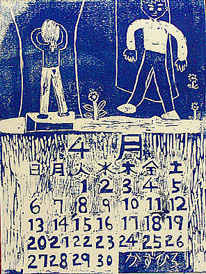 4月
日月火水木金土
1 2 3 4 5
6 7 8 9 10 11 12
13 14 15 16 17 18 19
20 21 22 23 24 25 26
27 28 29 30 かずひろ